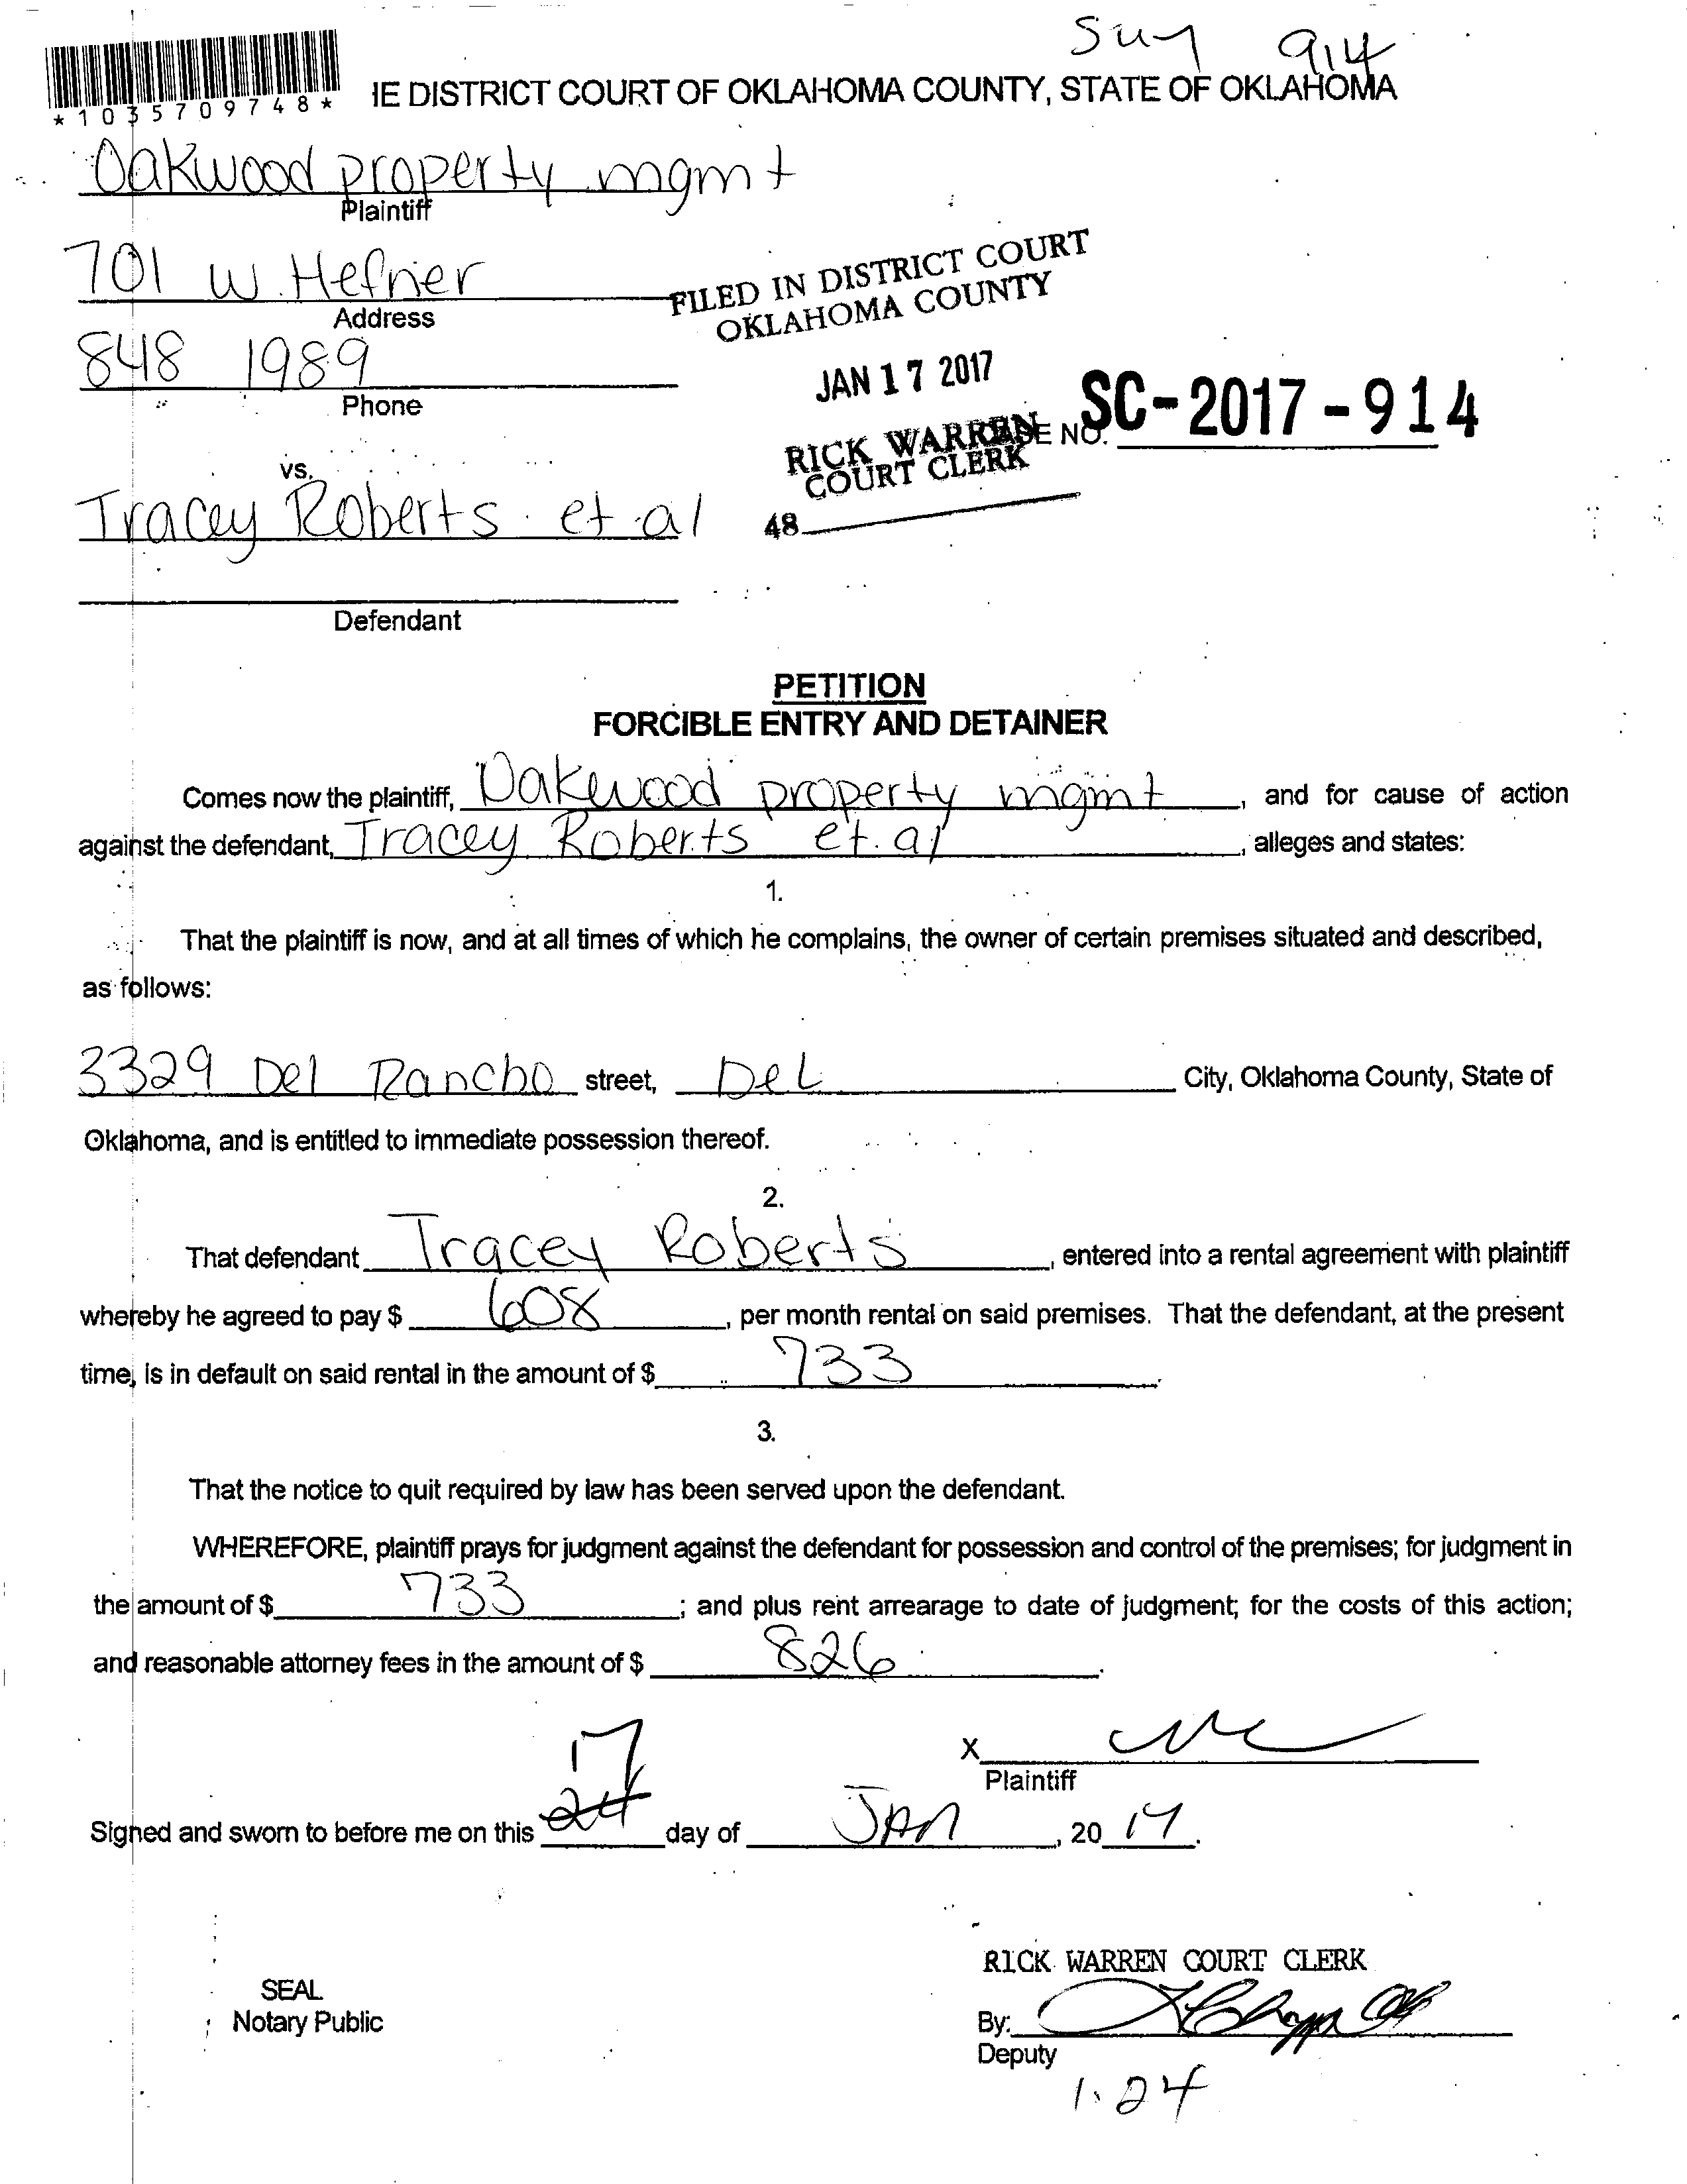 914
*1035709748* IE DISTRICT COURT OF OKLAHOMA COUNTY, STATE OF OKLAHOMA
Oakwood property mgmt
Plaintiff
701 W. Hefner
Address
FILED IN DISTRICT COURT
OKLAHOMA COUNTY
848 1989
Phone
JAN 17 2017
RICK WARREN
COURT CLERK
SE NO. SC-2017-914
48
vs.
Tracey Roberts et al
Defendant
PETITION
FORCIBLE ENTRY AND DETAINER
Comes now the plaintiff, Oakwood property mgmt, and for cause of action
against the defendant, Tracey Roberts et. al, alleges and states:
1.
That the plaintiff is now, and at all times of which he complains, the owner of certain premises situated and described,
as follows:
3329 Del Rancho street, Del City, Oklahoma County, State of
Oklahoma, and is entitled to immediate possession thereof.
2.
That defendant Tracey Roberts, entered into a rental agreement with plaintiff
whereby he agreed to pay $ 608, per month rental on said premises. That the defendant, at the present
time, is in default on said rental in the amount of $ 733.
3.
That the notice to quit required by law has been served upon the defendant.
WHEREFORE, plaintiff prays for judgment against the defendant for possession and control of the premises; for judgment in
the amount of $ 733; and plus rent arrearage to date of judgment; for the costs of this action;
and reasonable attorney fees in the amount of $ 826.
X
Plaintiff
17
Signed and sworn to before me on this 24 day of JAN, 20 17.
RICK WARREN COURT CLERK
SEAL
Notary Public
By:
Deputy
1.24